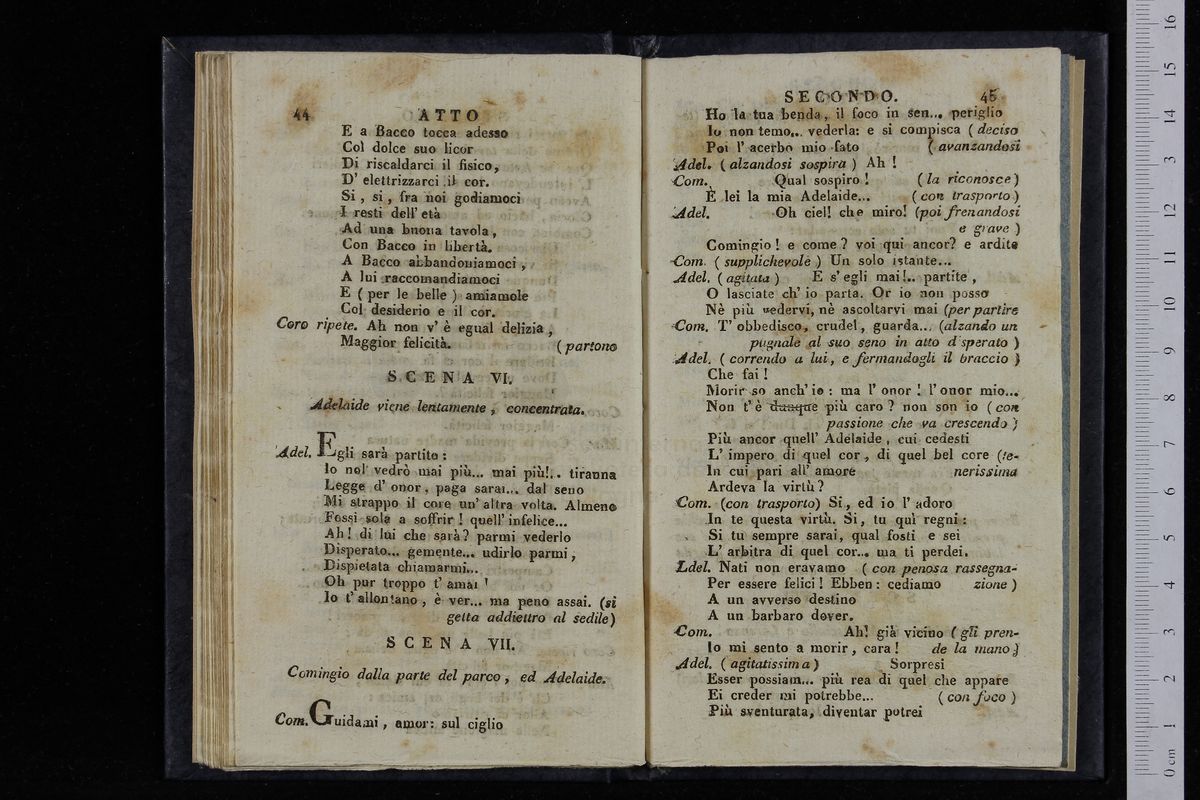 44 ATTO
E a Bacco tocca adesso
Col dolce suo licor
Di riscaldarci il fisico,
D' elettrizzarci il cor.
Si, si, fra noi godiamoci
I resti dell' età
Ad una buona tavola,
Con Bacco in libertà.
A Bacco abbandoniamoci,
A lui raccomandiamoci
E ( per le belle ) amiamole
Col desiderio e il cor.
Coro ripete. Ah non v' è egual delizia,
Maggior felicità. (partono
SCENA VI.
Adelaide viene lentamente, concentrata.
Adel. Egli sarà partito:
Io nol vedrò mai più... mai più!.. tiranna
Legge d' onor, paga sarai... dal seno
Mi strappo il core un' altra volta. Almeno
Fossi sola a soffrir! quell' infelice...
Ah! di lui che sarà? parmi vederlo
Disperato... gemente... udirlo parmi,
Dispietata chiamarmi...
Oh pur troppo t' amai !
Io t' allontano, è ver... ma peno assai. (si
getta addietro al sedile)
SCENA VII.
Comingio dalla parte del parco, ed Adelaide.
Com. Guidami, amor: sul ciglio
SECONDO. 45
Ho la tua benda, il foco in sen... periglio
Io non temo... vederla: e si compisca ( deciso
Poi l' acerbo mio fato ( avanzandosi
Adel. ( alzandosi sospira ) Ah !
Com. Qual sospiro! ( la riconosce)
È lei la mia Adelaide... ( con trasporto )
Adel. Oh ciel! che miro! (poi frenandosi
e grave )
Comingio! e come? voi qui ancor? e ardite
Com. ( supplichevole ) Un solo istante...
Adel. ( agitata ) E s' egli mai!.. partite,
O lasciate ch' io parta. Or io non posso
Nè più vedervi, nè ascoltarvi mai (per partire
Com. T' obbedisco, crudel, guarda... (alzando un
pugnale al suo seno in atto d'sperato )
Adel. ( correndo a lui, e fermandogli il braccio )
Che fai!
Morir so anch' io: ma l' onor! l' onor mio...
Non t' è dunque più caro? non son io ( con
passione che va crescendo )
Più ancor quell' Adelaide, cui cedesti
L' impero di quel cor, di quel bel core (te-
In cui pari all' amore nerissima
Ardeva la virtù?
Com. (con trasporto) Si, ed io l' adoro
In te questa virtù. Si, tu quì regni:
Si tu sempre sarai, qual fosti e sei
L' arbitra di quel cor... ma ti perdei.
Ldel. Nati non eravamo ( con penosa rassegna-
Per essere felici! Ebben: cediamo zione )
A un avverso destino
A un barbaro dover.
Com. Ah! già vicino ( gli pren-
Io mi sento a morir, cara! de la mano)
Adel. ( agitatissima ) Sorpresi
Esser possiam... più rea di quel che appare
Ei creder mi potrebbe... ( con foco )
Più sventurata, diventar potrei